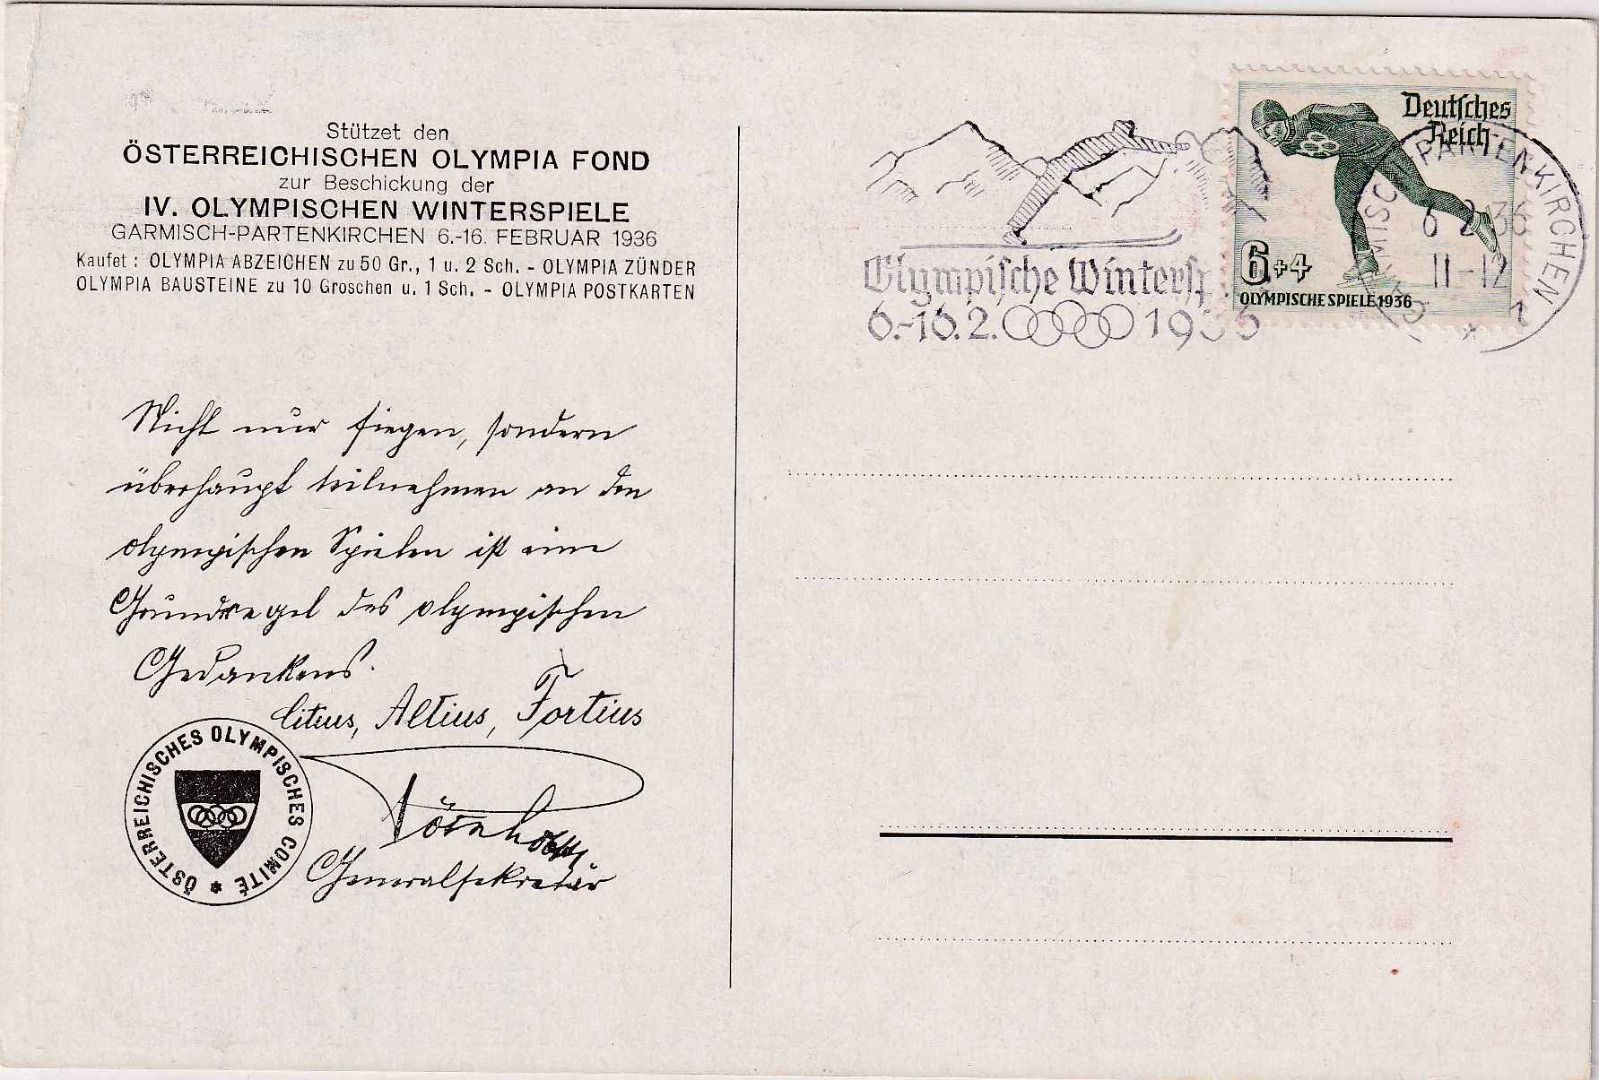 Stützet den
ÖSTERREICHISCHEN OLYMPIA FOND
zur Beschickung der
IV. OLYMPISCHEN WINTERSPIELE
GARMISCH-PARTENKIRCHEN 6.-16. FEBRUAR 1936
Kaufet : OLYMPIA ABZEICHEN zu 50 Gr., 1 u. 2 Sch. - OLYMPIA ZÜNDER
OLYMPIA BAUSTEINE zu 10 Groschen u. 1 Sch. - OLYMPIA POSTKARTEN
Nicht nur siegen, sondern
überhaupt teilnehmen an den
olympischen Spielen ist eine
Grundregel des olympischen
Gedankens.
Citius, Altius, Fortius
Generalsekretär
ÖSTERREICHISCHES OLYMPISCHES COMITÉ *
Olympische Wintersp
6.-16.2. 1936
Deutsches
Reich
6+4
OLYMPISCHE SPIELE 1936
GARMISCH-PARTENKIRCHEN 2 *
6 2 36
11-12